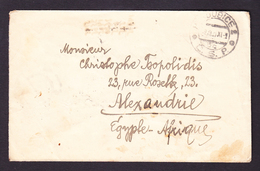 Monsieur
Christophe Topolidis
23, rue Rosette, 23.
Alexandrie
Egypte-Afrique